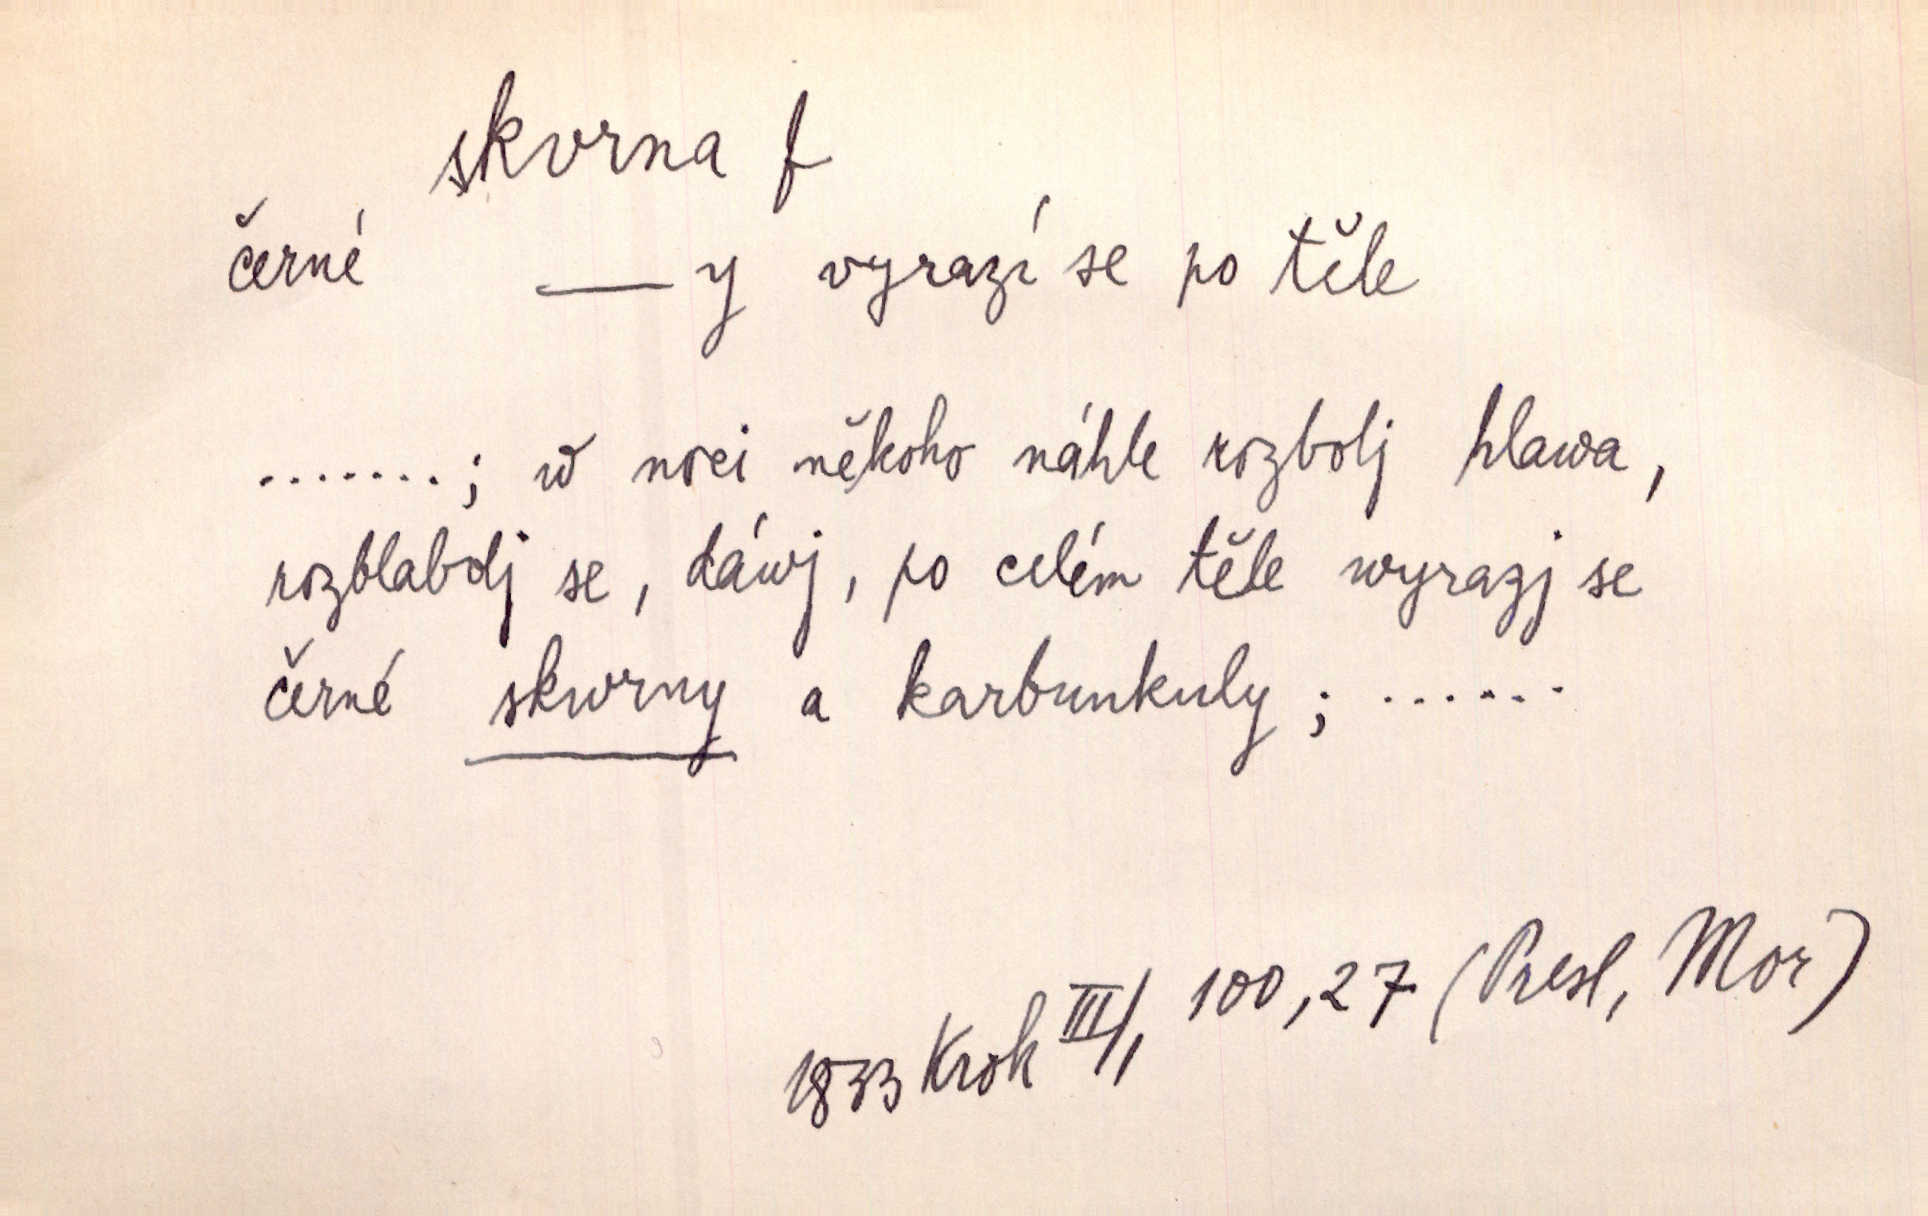 skvrna f
černé —y vyrazí se po těle
.......; w noci někoho náhle rozbolj hlawa,
rozblabolj se, dáwj, po celém těle wyrazj se
černé skwrny a karbunkuly; ......
1833 Krok III/1, 100, 27 (Presl, Mor)